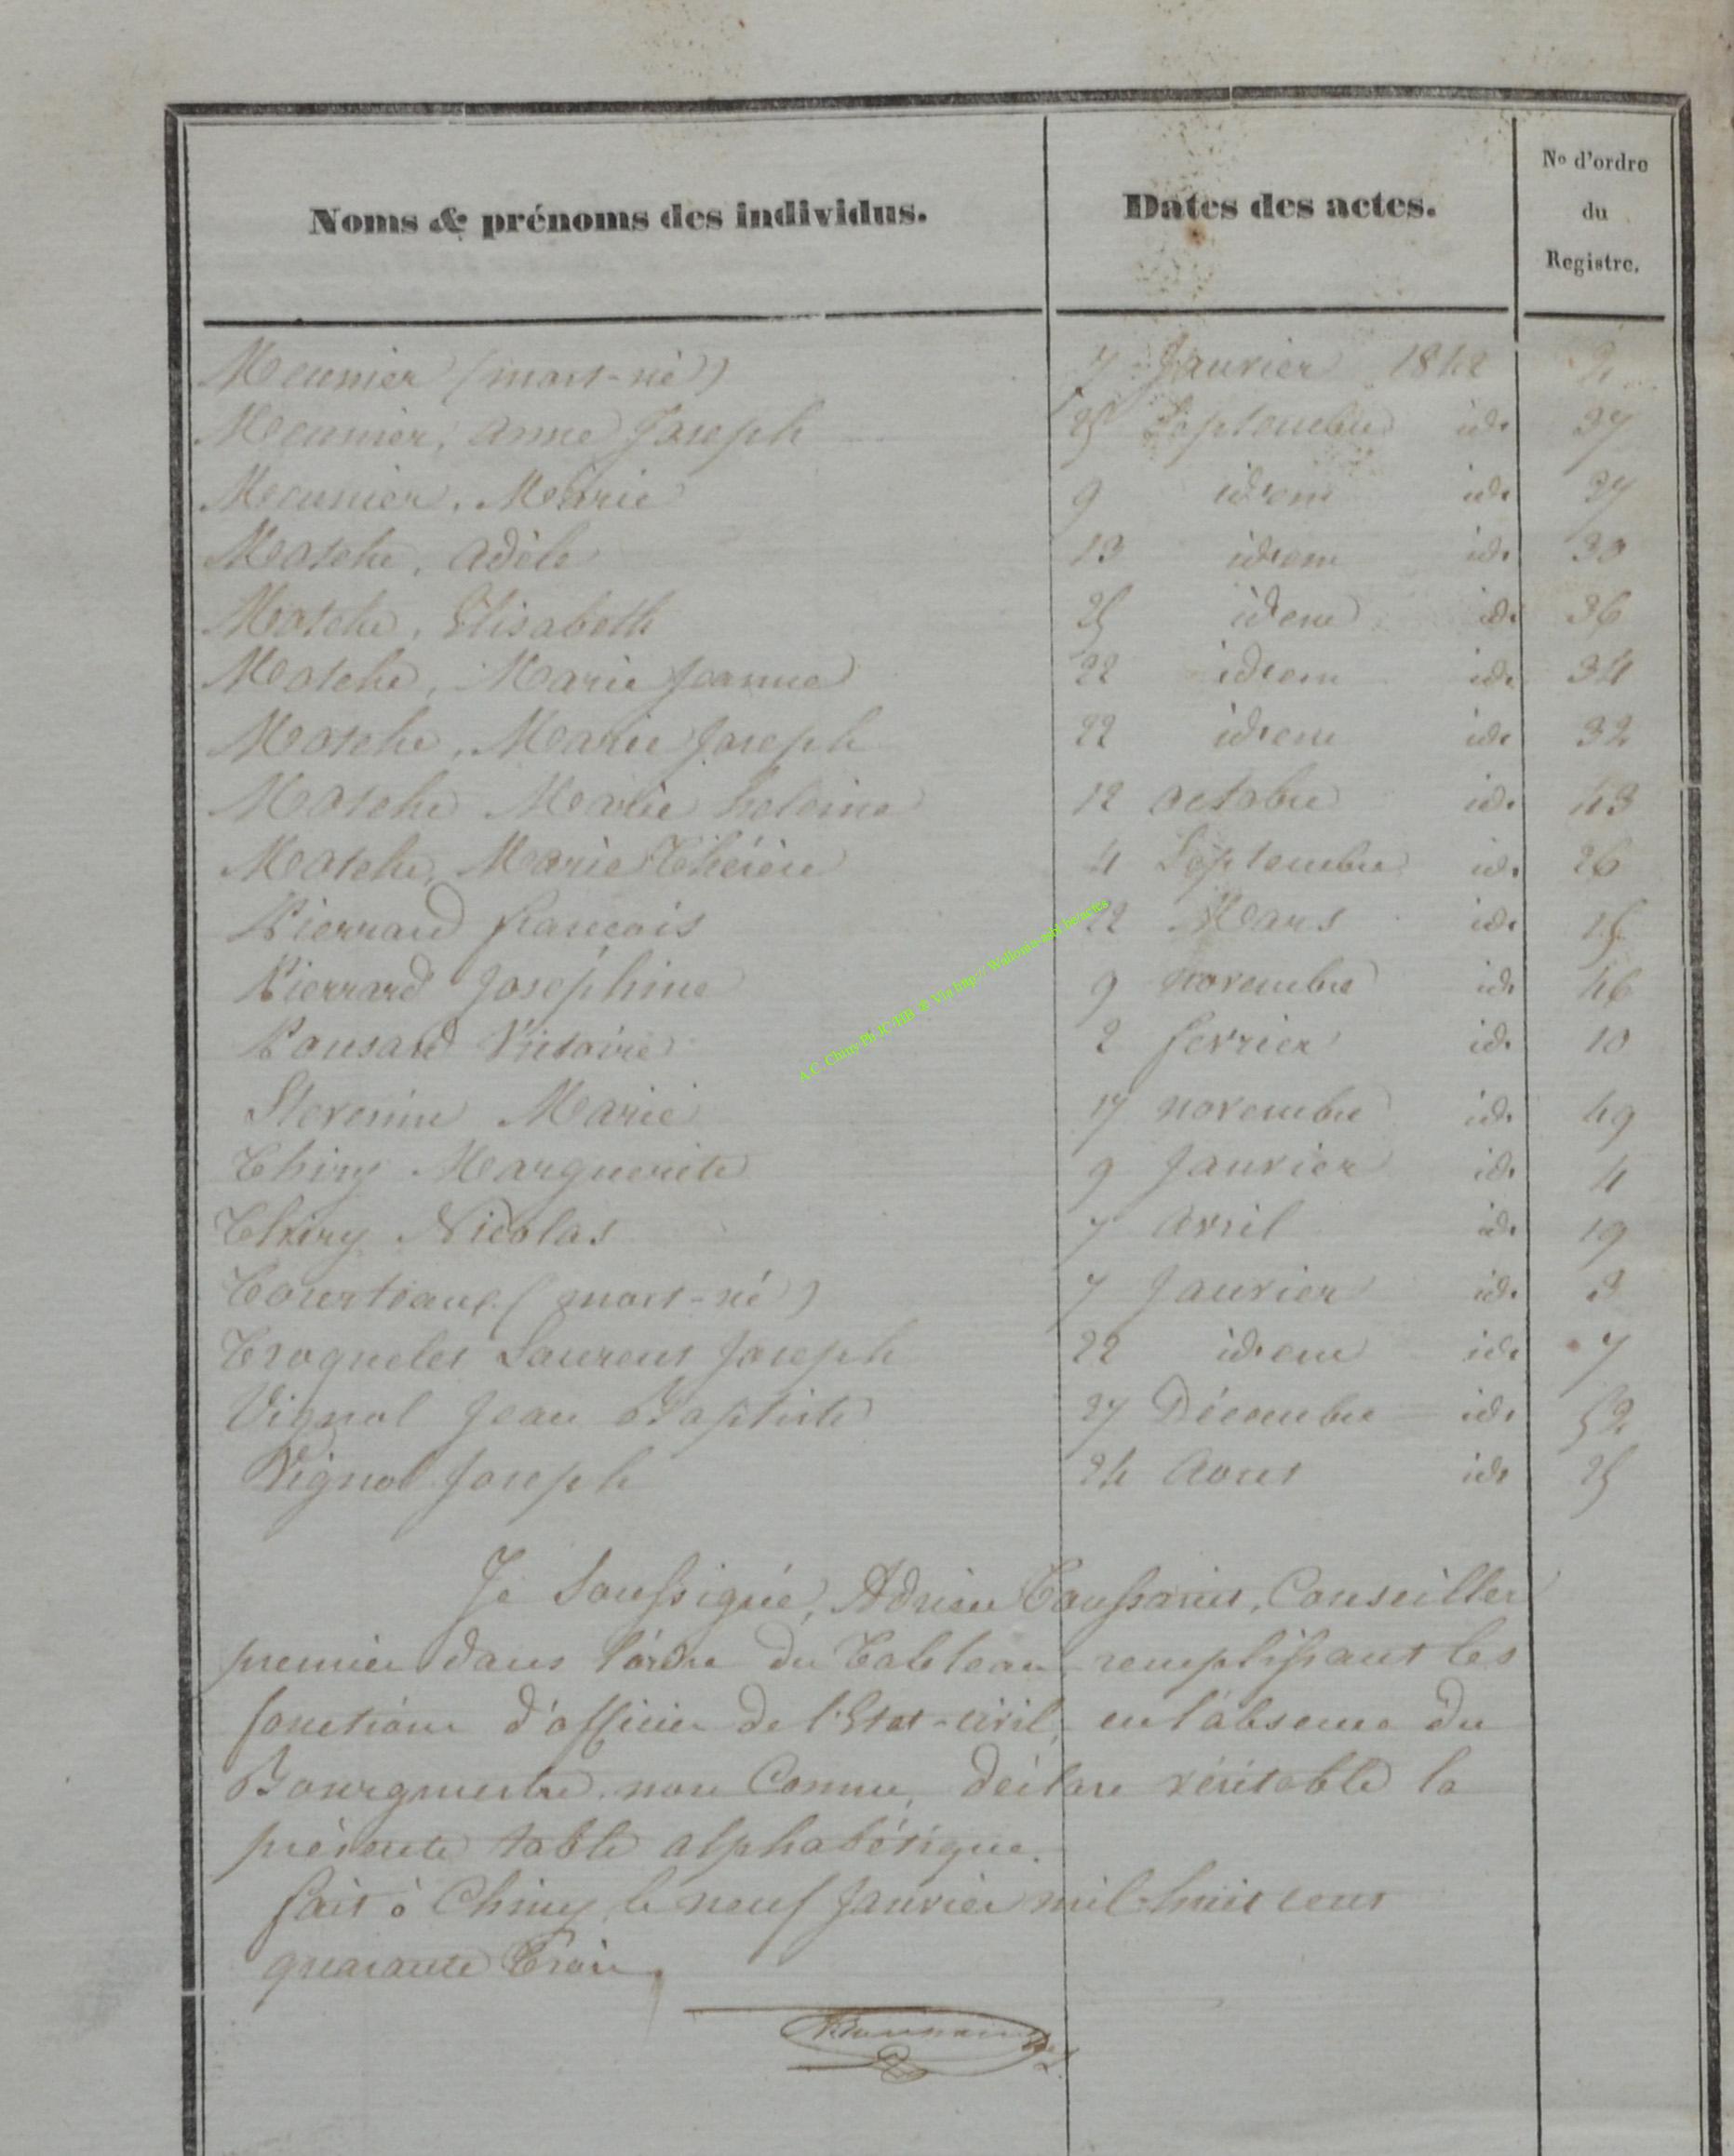 Noms & prénoms des individus. Dates des actes. No d'ordre du Registre.
Meunier (mort-né) 7 Janvier 1842 2
Meunier, anne Joseph 25 Septembre id. 37
Meunier, Marie 9 idem id. 27
Motche, adèle 13 idem id. 30
Motche, Elisabeth 25 idem id. 36
Motche, Marie Jeanne 22 idem id. 34
Motche, Marie Joseph 22 idem id. 32
Motche Marie heleine 12 octobre id. 43
Motche, Marie Thérèse 4 Septembre id. 26
Pierrard françois 22 Mars id. 15
Pierrard Joséphine 9 novembre id. 46
Ponsard Victoire 2 fevrier id. 10
Stevenin Marie 17 novembre id. 49
Thiry Marguerite 9 Janvier id. 4
Thiry Nicolas 7 avril id. 19
Tourteaux (mort-né) 7 Janvier id. 3
Troquelet Laurent Joseph 22 idem id. 7
Vignol Jean Baptiste 27 Décembre id. 52
Vignol Joseph 24 Aout id. 25
Je Soussigné, Adrien Toussaint, Conseiller
premier dans l'ordre du Tableau remplissant les
fonctions d'officier de l'Etat-civil, en l'absence du
Bourgmestre non Connu, déclare véritable la
présente table alphabétique.
fait à Chiny le neuf Janvier mil-huit cent
quarante Trois.
A.C. Chiny Ph JC-HB © Via http://